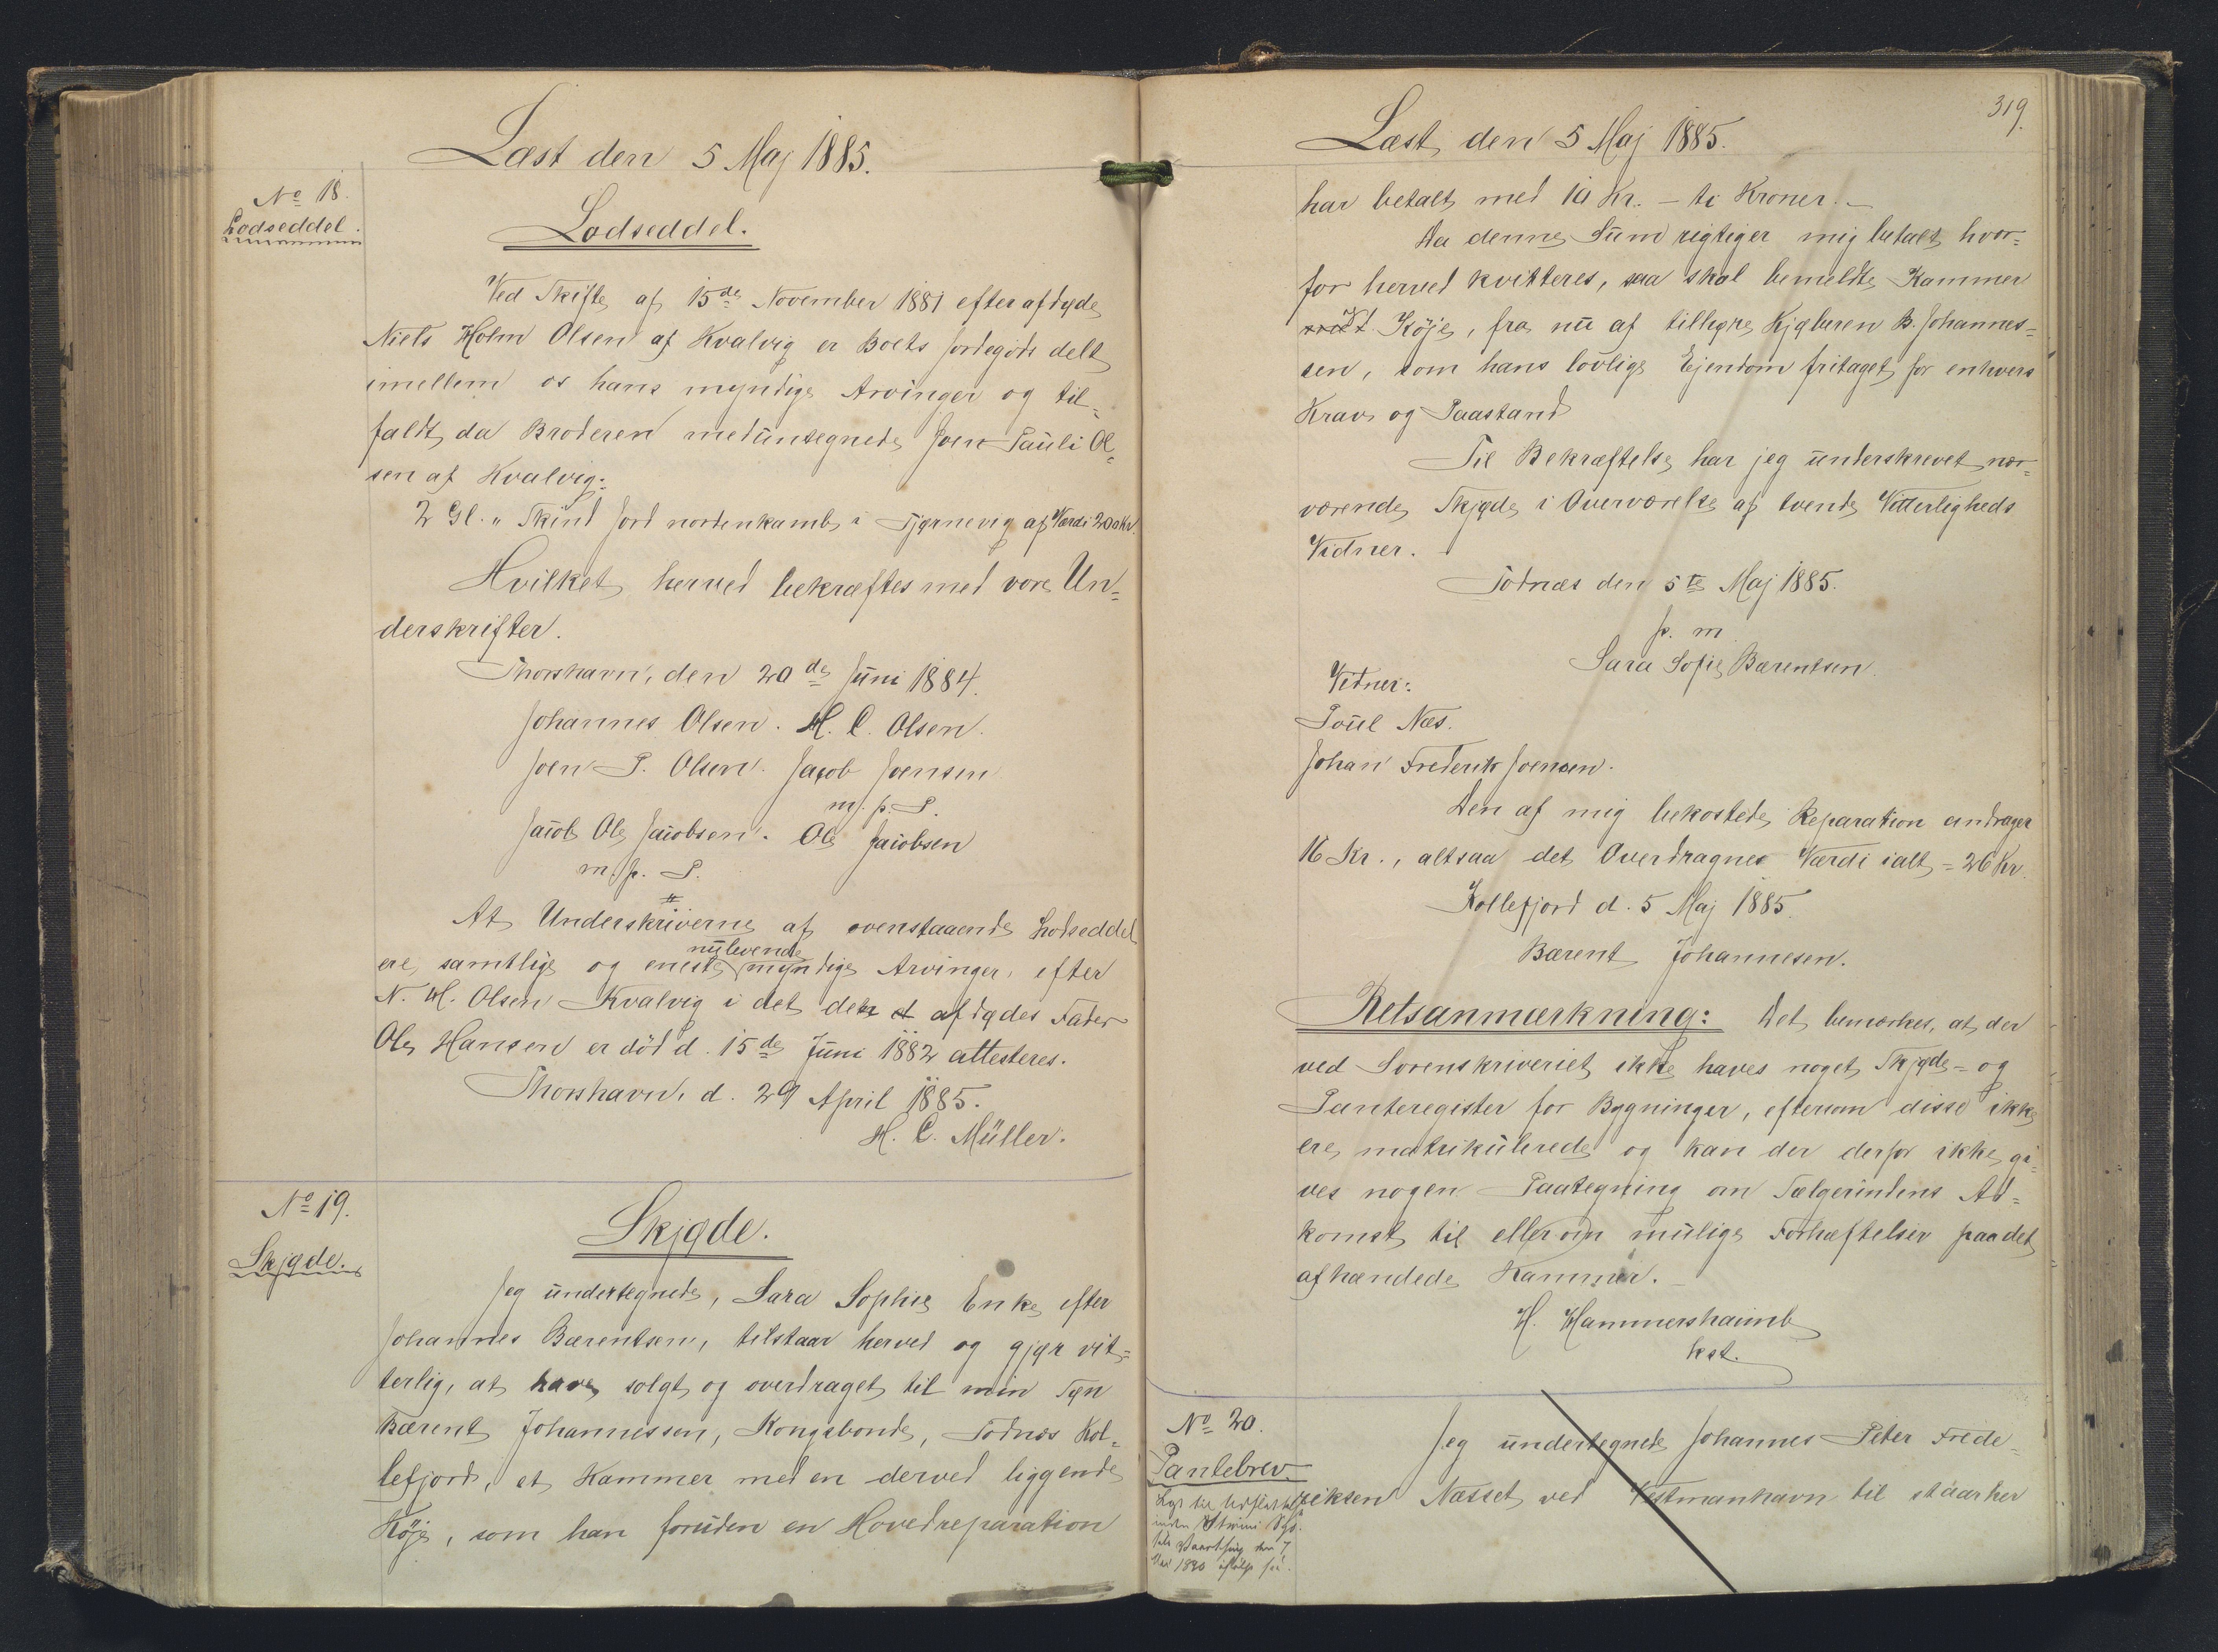 Læst den 5 Maj 1885.
No 18.
Lodseddel.
Lodseddel.
Ved Skifte af 15de November 1881 efter afdøde
Niels Holm Olsen af Kvalvig er Boets Jordegods delt
imellem os hans myndige Arvinger og til-
faldt da Broderen medundertegnede Joen Pauli Ol-
sen af Kvalvig:
2 Gl. " Skind Jord nordenkamb i Tjørnevig af Værdi 200 Kr.
Hvilket herved bekræftes med vore Un-
derskrifter.
Thorshavn, den 20de Juni 1884.
Johannes Olsen. H. C. Olsen.
Joen P. Olsen. Jacob Joensen
m. p. P.
Jacob Ole Jacobsen. Ole Jacobsen
m. p. P.
At Underskriverne af ovenstaaende Lodseddel
nulevende
ere samtlige og eneste myndige Arvinger efter
N. H. Olsen Kvalvig i det den afdødes Fader
Ole Hansen er død d. 15de Juni 1882 attesteres.
Thorshavn, d. 29 April 1885.
H. C. Müller.
No 19.
Skjøde.
Skjøde.
Jeg undertegnede, Sara Sophie Enke efter
Johannes Bærentsen, tilstaar herved og gjør vit-
terlig, at have solgt og overdraget til min Søn
Bærent Johannessen, Kongsbonde, Todnæs Kol-
lefjord, et Kammer med en derved liggende
Köje, som han foruden en Hovedreparation
319.
Læst den 5 Maj 1885.
har betalt med 10 Kr. - ti Kroner. -
Da denne Sum rigtiger mig betalt, hvor-
for herved kvitteres, saa skal bemeldte Kammer
Köje, fra nu af tilhøre Kjøberen B. Johannes-
sen, som hans lovlige Ejendom fritaget for enhvers
Krav og Paastand
Til Bekræftelse har jeg underskrevet nær-
værende Skjøde i Overværelse af tvende Vitterligheds
Vidner.
Todnæs den 5te Maj 1885.
p. m
Sara Sofie Bærentsen.
Vidner:
Poul Næs.
Johan Frederik Joensen.
Den af mig bekostede Reparation andrager
16 Kr., altsaa det Overdragnes Værdi ialt = 26 Kr.
Kollefjord d. 5 Maj 1885.
Bærent Johannesen.
Retsanmærkning: Det bemærkes, at der
ved Sorenskriveriet ikke haves noget Skjøde- og
Panteregister for Bygninger, eftersom disse ikke
ere matrikulerede og kan der derfor ikke gi-
ves nogen Paategning om Sælgerindens Ad-
komst til eller om mulige Forhæftelser paa det
afhændede Kammer. -
H. Hammershaimb
kst.
No 20.
Pantebrev.
Jeg undertegnede Johannes Peter Frede-
riksen Næsset ved Vestmanhavn til staar her